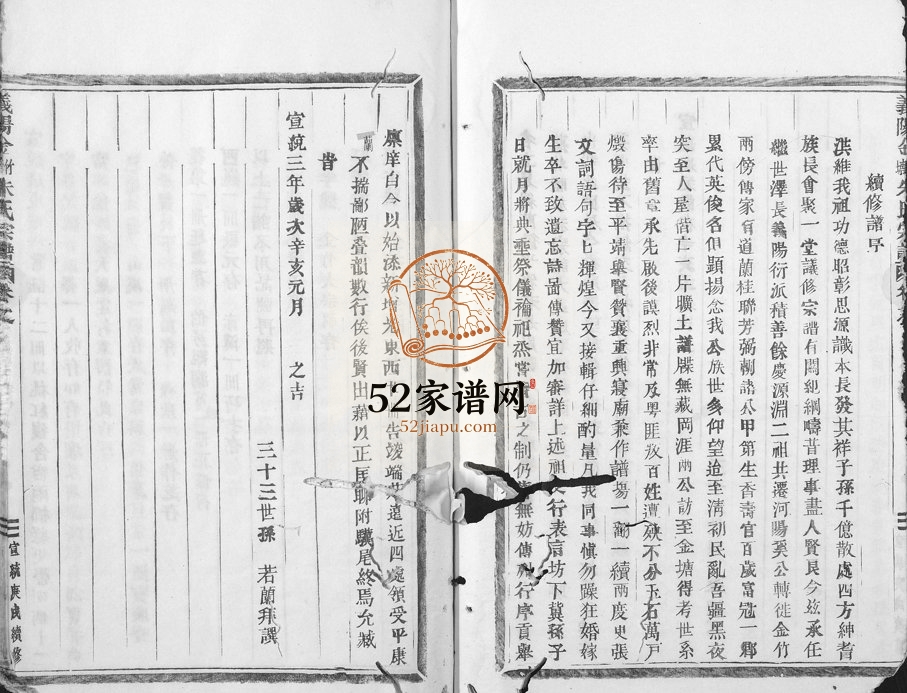 續修譜序
洪維我祖功德昭彰思源識本長發其祥子孫千億散處四方紳耆
族長會聚一堂議修宗譜有關紀綱疇昔理事盡人賢良今茲承任
繼世澤長義陽衍派積善餘慶源淵二祖共遷河陽奚公轉徙金竹
兩傍傳家有道蘭桂聯芳弼朝諸公甲第生香壽官百歲富冠一鄉
累代英俊名伸顯揚念我公族世多仰望迨至清初民亂吾疆黑夜
突至人屋皆亡一片曠土譜牒無藏岡涯兩公訪至金塘得考世系
率由舊章承先啟後謨烈非常及粵匪叛百姓遭殃不分玉石萬戶
燬傷待至平靖舉賢贊襄重興寢廟秉作譜場一衞一續兩度更張
文詞語句字七輝煌今又接輯仔細酌量凡我同事慎勿躁狂婚嫁
生卒不致遺忘誌圖傳贊宜加審詳上述祖父行表言坊下冀孫子
日就月將典垂祭儀禴祀烝嘗 之制仍舊無妨傳外行序貢舉
廩庠自今以始添新增光東西 告竣端節遠近四處領受平康
蘭不揣鄙陋叠韻數行俟後賢出藉以正匡聊附驥尾終焉允臧
旹
宣統三年歲次辛亥元月 之吉
三十三世孫 若蘭拜譔
宣統庚戌續修
52家谱网
52jiapu.com